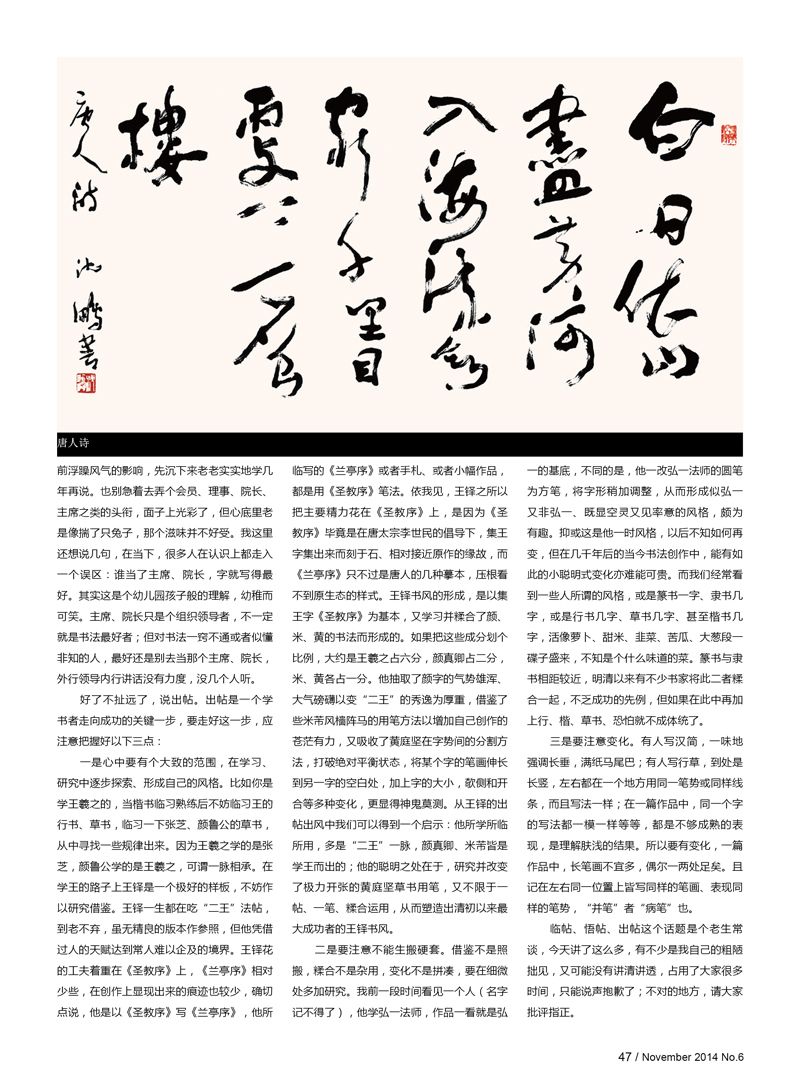 白日依山
盡黄河
入海流欲
窮千里目
更上一層
樓
唐人詩 沈鹏書
唐人诗
前浮躁风气的影响，先沉下来老老实实地学几
年再说。也别急着去弄个会员、理事、院长、
主席之类的头衔，面子上光彩了，但心底里老
是像揣了只兔子，那个滋味并不好受。我这里
还想说几句，在当下，很多人在认识上都走入
一个误区：谁当了主席、院长，字就写得最
好。其实这是个幼儿园孩子般的理解，幼稚而
可笑。主席、院长只是个组织领导者，不一定
就是书法最好者；但对书法一窍不通或者似懂
非知的人，最好还是别去当那个主席、院长，
外行领导内行讲话没有力度，没几个人听。
好了不扯远了，说出帖。出帖是一个学
书者走向成功的关键一步，要走好这一步，应
注意把握好以下三点：
一是心中要有个大致的范围，在学习、
研究中逐步探索、形成自己的风格。比如你是
学王羲之的，当楷书临习熟练后不妨临习王的
行书、草书，临习一下张芝、颜鲁公的草书，
从中寻找一些规律出来。因为王羲之学的是张
芝，颜鲁公学的是王羲之，可谓一脉相承。在
学王的路子上王铎是一个极好的样板，不妨作
以研究借鉴。王铎一生都在吃“二王”法帖，
到老不弃，虽无精良的版本作参照，但他凭借
过人的天赋达到常人难以企及的境界。王铎花
的工夫着重在《圣教序》上，《兰亭序》相对
少些，在创作上显现出来的痕迹也较少，确切
点说，他是以《圣教序》写《兰亭序》，他所
临写的《兰亭序》或者手札、或者小幅作品，
都是用《圣教序》笔法。依我见，王铎之所以
把主要精力花在《圣教序》上，是因为《圣
教序》毕竟是在唐太宗李世民的倡导下，集王
字集出来而刻于石、相对接近原作的缘故，而
《兰亭序》只不过是唐人的几种摹本，压根看
不到原生态的样式。王铎书风的形成，是以集
王字《圣教序》为基本，又学习并糅合了颜、
米、黄的书法而形成的。如果把这些成分划个
比例，大约是王羲之占六分，颜真卿占二分，
米、黄各占一分。他抽取了颜字的气势雄浑、
大气磅礴以变“二王”的秀逸为厚重，借鉴了
些米芾风樯阵马的用笔方法以增加自己创作的
苍茫有力，又吸收了黄庭坚在字势间的分割方
法，打破绝对平衡状态，将某个字的笔画伸长
到另一字的空白处，加上字的大小，欹侧和开
合等多种变化，更显得神鬼莫测。从王铎的出
帖出风中我们可以得到一个启示：他所学所临
所用，多是“二王”一脉，颜真卿、米芾皆是
学王而出的；他的聪明之处在于，研究并改变
了极力开张的黄庭坚草书用笔，又不限于一
帖、一笔、糅合运用，从而塑造出清初以来最
大成功者的王铎书风。
二是要注意不能生搬硬套。借鉴不是照
搬，糅合不是杂用，变化不是拼凑，要在细微
处多加研究。我前一段时间看见一个人（名字
记不得了），他学弘一法师，作品一看就是弘
一的基底，不同的是，他一改弘一法师的圆笔
为方笔，将字形稍加调整，从而形成似弘一
又非弘一、既显空灵又见率意的风格，颇为
有趣。抑或这是他一时风格，以后不知如何再
变，但在几千年后的当今书法创作中，能有如
此的小聪明式变化亦难能可贵。而我们经常看
到一些人所谓的风格，或是篆书一字、隶书几
字，或是行书几字、草书几字、甚至楷书几
字，活像萝卜、甜米、韭菜、苦瓜、大葱段一
碟子盛来，不知是个什么味道的菜。篆书与隶
书相距较近，明清以来有不少书家将此二者糅
合一起，不乏成功的先例，但如果在此中再加
上行、楷、草书、恐怕就不成体统了。
三是要注意变化。有人写汉简，一味地
强调长垂，满纸马尾巴；有人写行草，到处是
长竖，左右都在一个地方用同一笔势或同样线
条，而且写法一样；在一篇作品中，同一个字
的写法都一模一样等等，都是不够成熟的表
现，是理解肤浅的结果。所以要有变化，一篇
作品中，长笔画不宜多，偶尔一两处足矣。且
记在左右同一位置上皆写同样的笔画、表现同
样的笔势，“并笔”者“病笔”也。
临帖、悟帖、出帖这个话题是个老生常
谈，今天讲了这么多，有不少是我自己的粗陋
拙见，又可能没有讲清讲透，占用了大家很多
时间，只能说声抱歉了；不对的地方，请大家
批评指正。
47 / November 2014 No.6